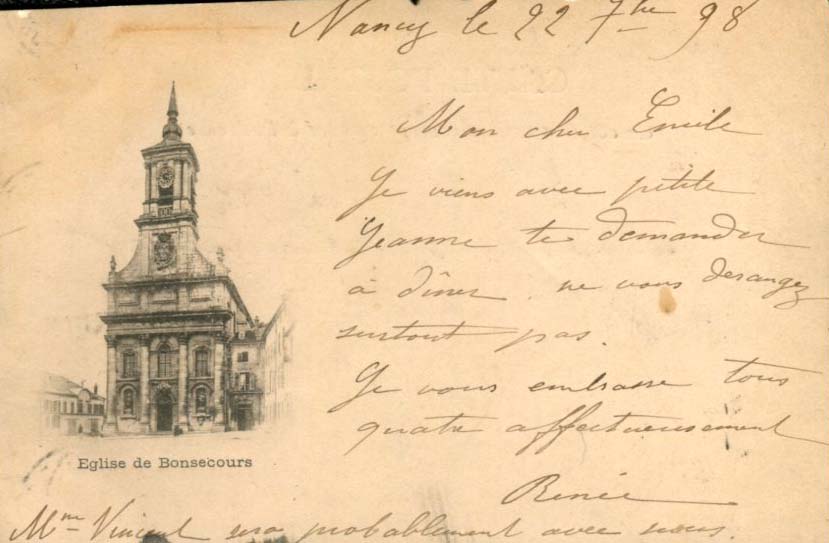 Nancy le 22 7bre 98
Mon cher Emile
Je viens avec petite
Jeanne te demander
à dîner. ne vous derangez
surtout pas.
Je vous embrasse tous
quatre affectueusement
Renée
Mme Vincent sera probablement avec nous.
Eglise de Bonsecours